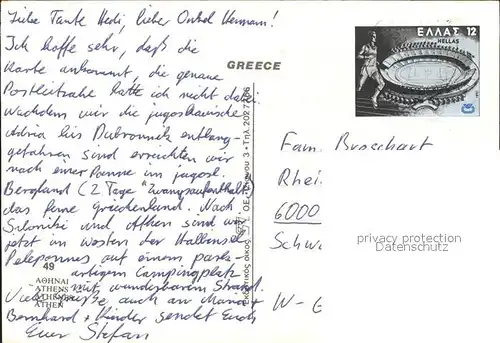 Liebe Tante Hedi, lieber Onkel Hermann!
Ich hoffe sehr, daß die
Karte ankommt, die genaue
Postleitzahl hatte ich nicht dabei.
Nachdem wir die jugoslawische
Adria bis Dubrovnik entlang-
gefahren sind erreichten wir
nach einer Panne im jugosl.
Bergland (2 Tage "Zwangsaufenthalt")
das ferne Griechenland. Nach
Saloniki und Athen sind wir
jetzt im Westen der Halbinsel
Peleponnes auf einem park-
artigem Campingplatz
mit wunderbarem Strand.
Viele Grüße auch an
Bernhard + Kinder sendet Euch
Euer Stefan
GREECE
49
ΑΘΗΝΑΙ
ATHENS
ATHEN
ΕΛΛΑΣ 12
HELLAS
Fam. Broschart
Rhei
6000
Schw
W-G
privacy protection
Datenschutz